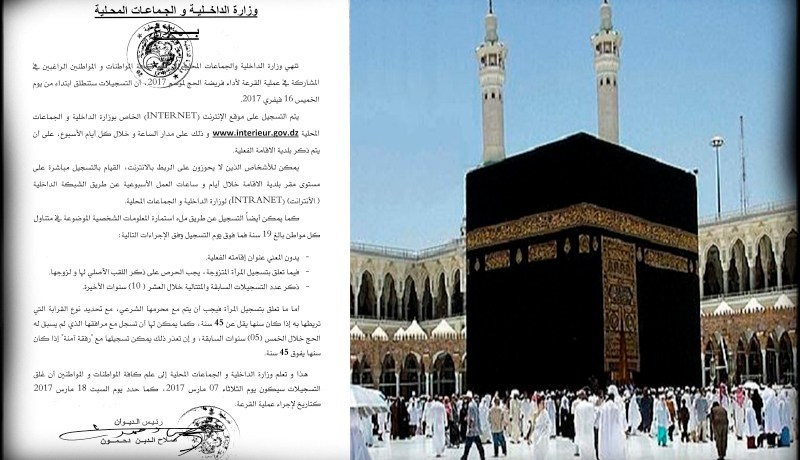 وزارة الداخلية و الجماعات المحلية
بـــلاغ
تنهي وزارة الداخلية والجماعات المحلية المواطنات و المواطنين الراغبين في
المشاركة في عملية القرعة لأداء فريضة الحج لموسم 2017، أن التسجيلات ستنطلق ابتداء من يوم
الخميس 16 فيفري 2017.
يتم التسجيل على موقع الإنترنت (INTERNET) الخاص بوزارة الداخلية و الجماعات
المحلية www.interieur.gov.dz و ذلك على مدار الساعة و خلال كل أيام الأسبوع، على أن
يتم ذكر بلدية الاقامة الفعلية.
يمكن للأشخاص الذين لا يحوزون على الربط بالانترنت، القيام بالتسجيل مباشرة على
مستوى مقر بلدية الاقامة خلال أيام و ساعات العمل الأسبوعية عن طريق الشبكة الداخلية
( الأنترانت) (INTRANET) لوزارة الداخلية و الجماعات المحلية.
كما يمكن أيضاً التسجيل عن طريق ملء استمارة المعلومات الشخصية الموضوعة في متناول
كل مواطن بالغ 19 سنة فما فوق يوم التسجيل وفق الإجراءات التالية:
- يدون المعني عنوان إقامته الفعلية.
- فيما تعلق بتسجيل المرأة المتزوجة، يجب الحرص على ذكر اللقب الأصلي لها و لزوجها.
- ذكر عدد التسجيلات السابقة والمتتالية خلال العشر ( 10) سنوات الأخيرة.
أما ما تعلق بتسجيل المرأة فيجب أن يتم مع محرمها الشرعي، مع تحديد نوع القرابة التي
تربطها به إذا كان سنها يقل عن 45 سنة، كما يمكن لها أن تسجل مع مرافقها الذي لم يسبق له
الحج خلال الخمس (05) سنوات السابقة، و إن تعذر ذلك يمكن تسجيلها مع "رفقة آمنة" إذا كان
سنها يفوق 45 سنة.
هذا و تعلم وزارة الداخلية و الجماعات المحلية إلى علم كافة المواطنات و المواطنين أن غلق
التسجيلات سيكون يوم الثلاثاء 07 مارس 2017، كما حدد يوم السبت 18 مارس 2017
كتاريخ لإجراء عملية القرعة.
رئيس الديوان
صلاح الدين دحمون